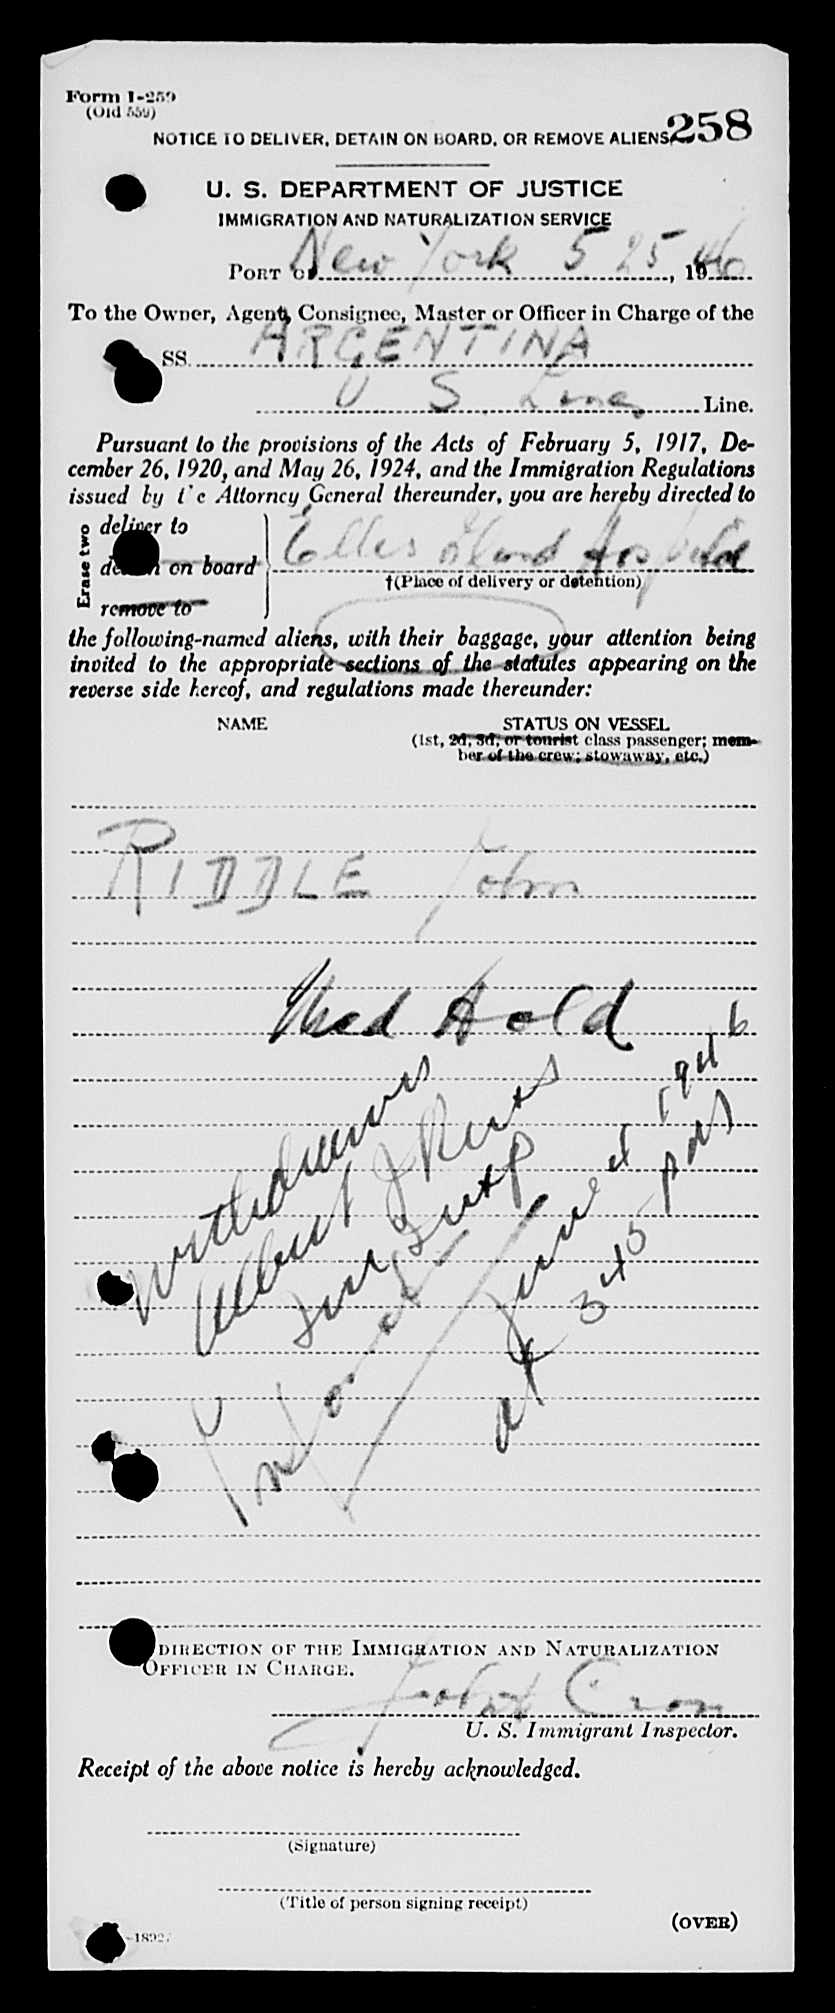 Form I-259
(Old 559)
NOTICE TO DELIVER, DETAIN ON BOARD, OR REMOVE ALIENS
258
U. S. DEPARTMENT OF JUSTICE
IMMIGRATION AND NATURALIZATION SERVICE
PORT of New York 5 25, 1946
To the Owner, Agent, Consignee, Master or Officer in Charge of the
SS. ARGENTINA
U S Lines Line.
Pursuant to the provisions of the Acts of February 5, 1917, De-
cember 26, 1920, and May 26, 1924, and the Immigration Regulations
issued by the Attorney General thereunder, you are hereby directed to
Erase two
deliver to
on board
remove to
Ellis Island Hospital
†(Place of delivery or detention)
the following-named aliens, with their baggage, your attention being
invited to the appropriate sections of the statutes appearing on the
reverse side hereof, and regulations made thereunder:
NAME STATUS ON VESSEL
(1st, 2d, 3d, or tourist class passenger; mem-
ber of the crew; stowaway, etc.)
RIDDLE John
Med Hold
withdrawn
Albert J
Imm Insp
June 4 1946
at 345 pm
DIRECTION OF THE IMMIGRATION AND NATURALIZATION
OFFICER IN CHARGE.
U. S. Immigrant Inspector.
Receipt of the above notice is hereby acknowledged.
(Signature)
(Title of person signing receipt)
(OVER)